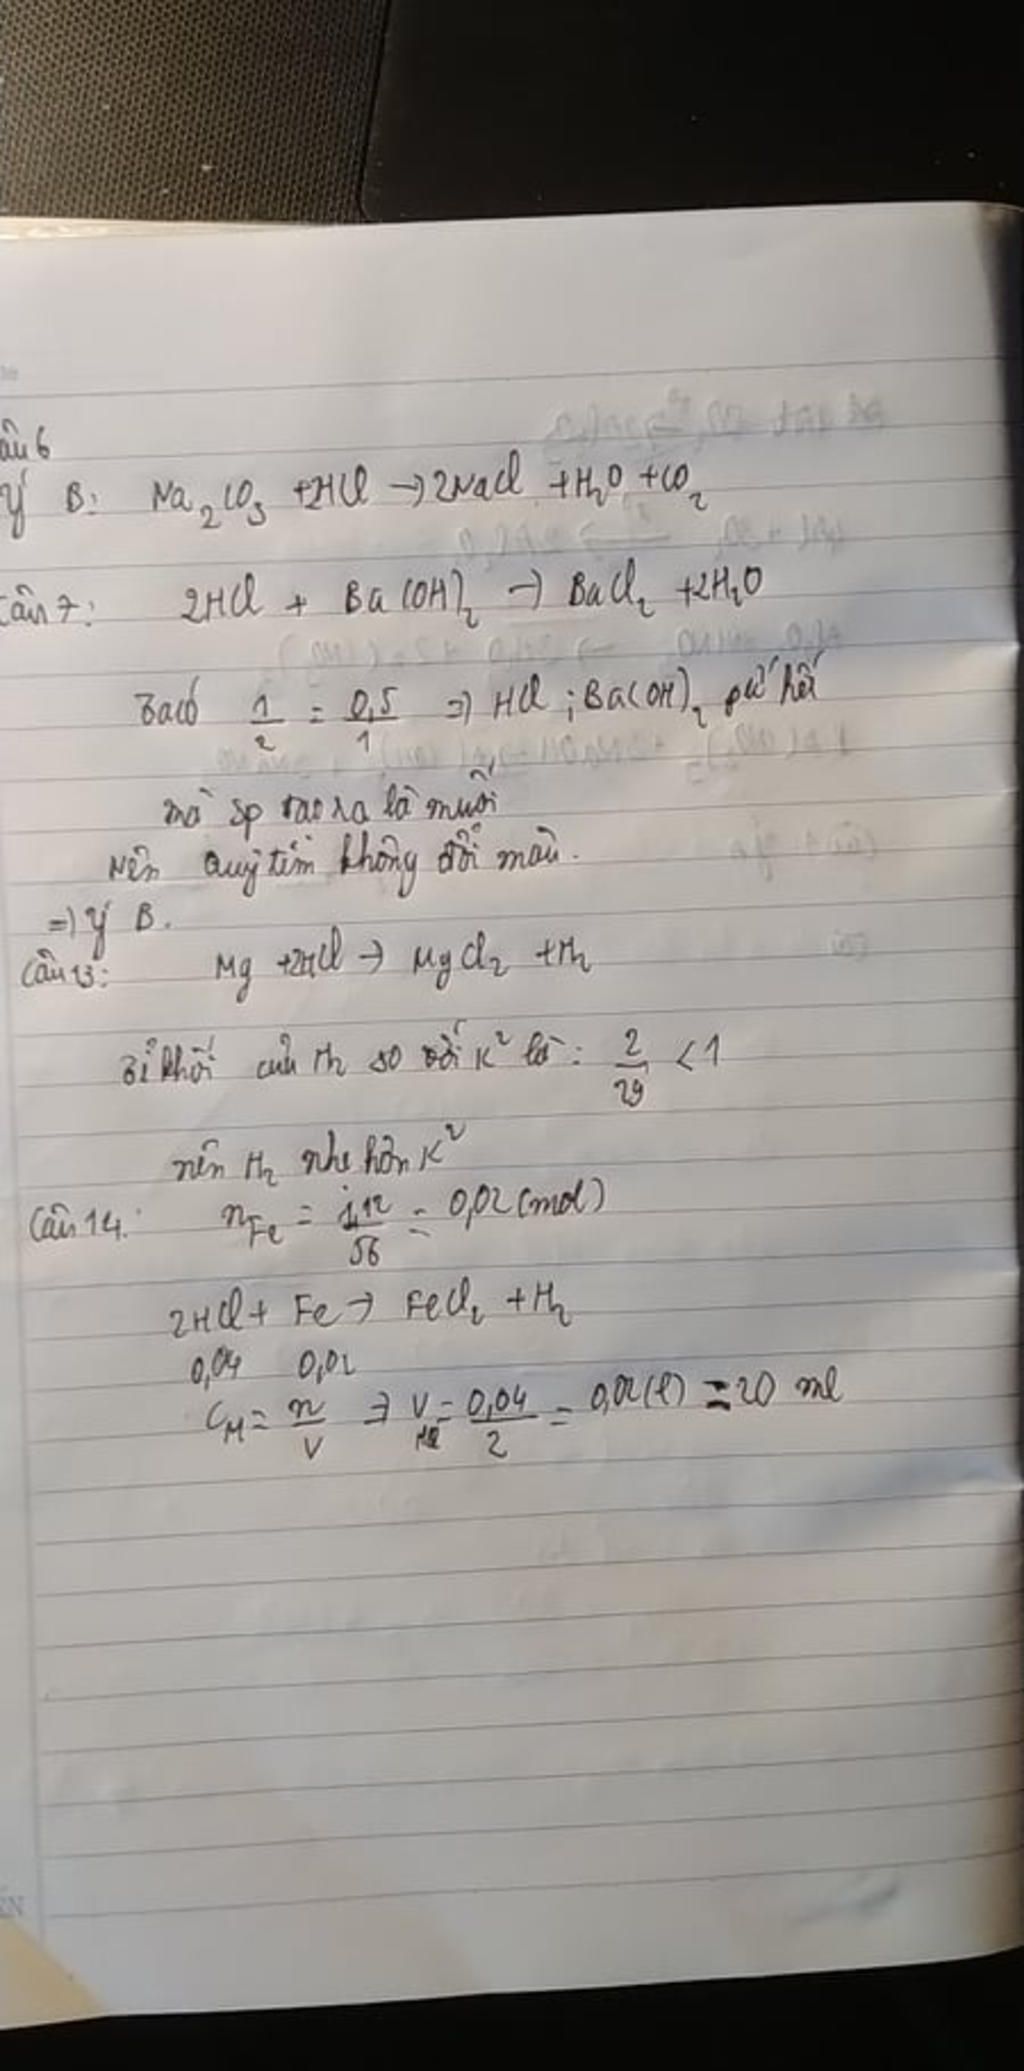 âu 6
ý B: Na₂CO₃ + 2HCl → 2NaCl + H₂O + CO₂
Câu 7: 2HCl + Ba(OH)₂ → BaCl₂ + 2H₂O
Ta có 1/2 = 0,5/1 => HCl ; Ba(OH)₂ pư hết
mà sp tạo ra là muối
Nên quỳ tím không đổi màu.
=> ý B.
Câu 13: Mg + 2HCl → MgCl₂ + H₂
Tỉ khối của H₂ so với K² là: 2/29 < 1
nên H₂ nhẹ hơn K²
Câu 14: nFe = 1,12/56 = 0,02 (mol)
2HCl + Fe → FeCl₂ + H₂
0,04 0,02
CM = n/V => V = 0,04/2 = 0,02 (l) = 20 ml